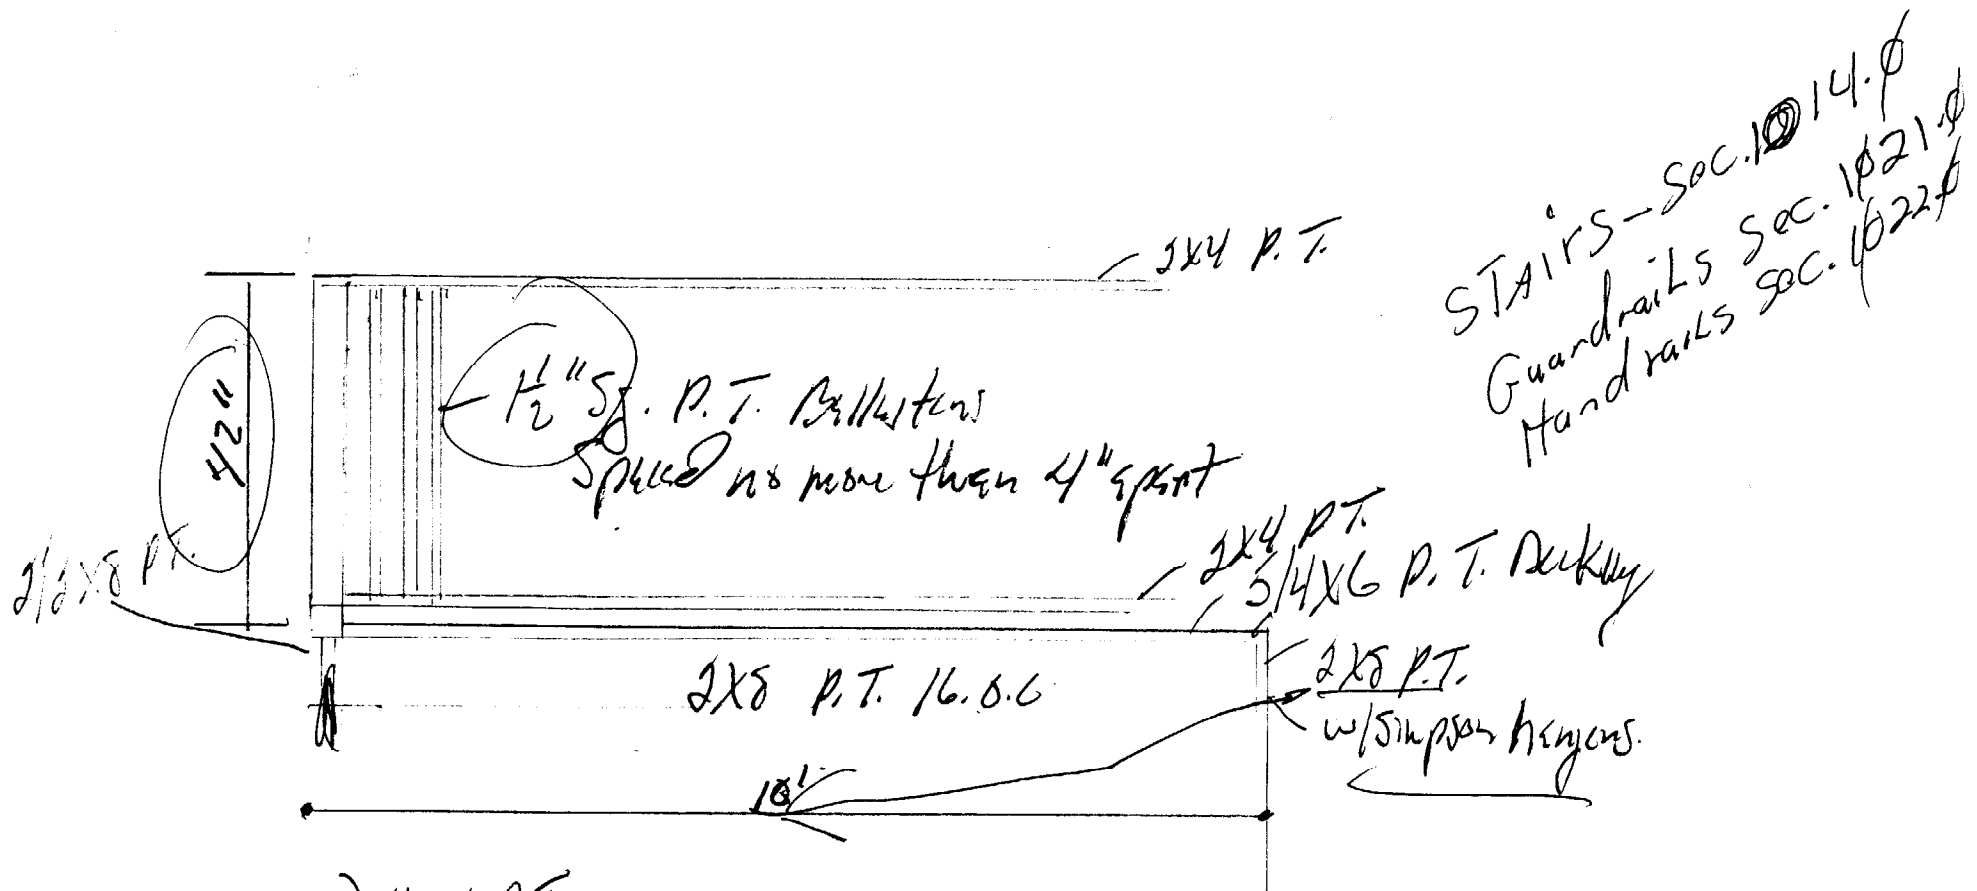 STAIrS - Sec. 1014.0
GuardraiLs Sec. 1021.0
HandraiLs Sec. 1022.0
2X4 P.T.
42"
1 1/2" Sq. P.T. Ballusters
Spaced no more than 4" apart
2/2X8 P.T.
2X4 P.T.
5/4X6 P.T. Decking
2X8 P.T. 16. O.C
2X8 P.T.
w/Simpson hangers.
10'
P.T.